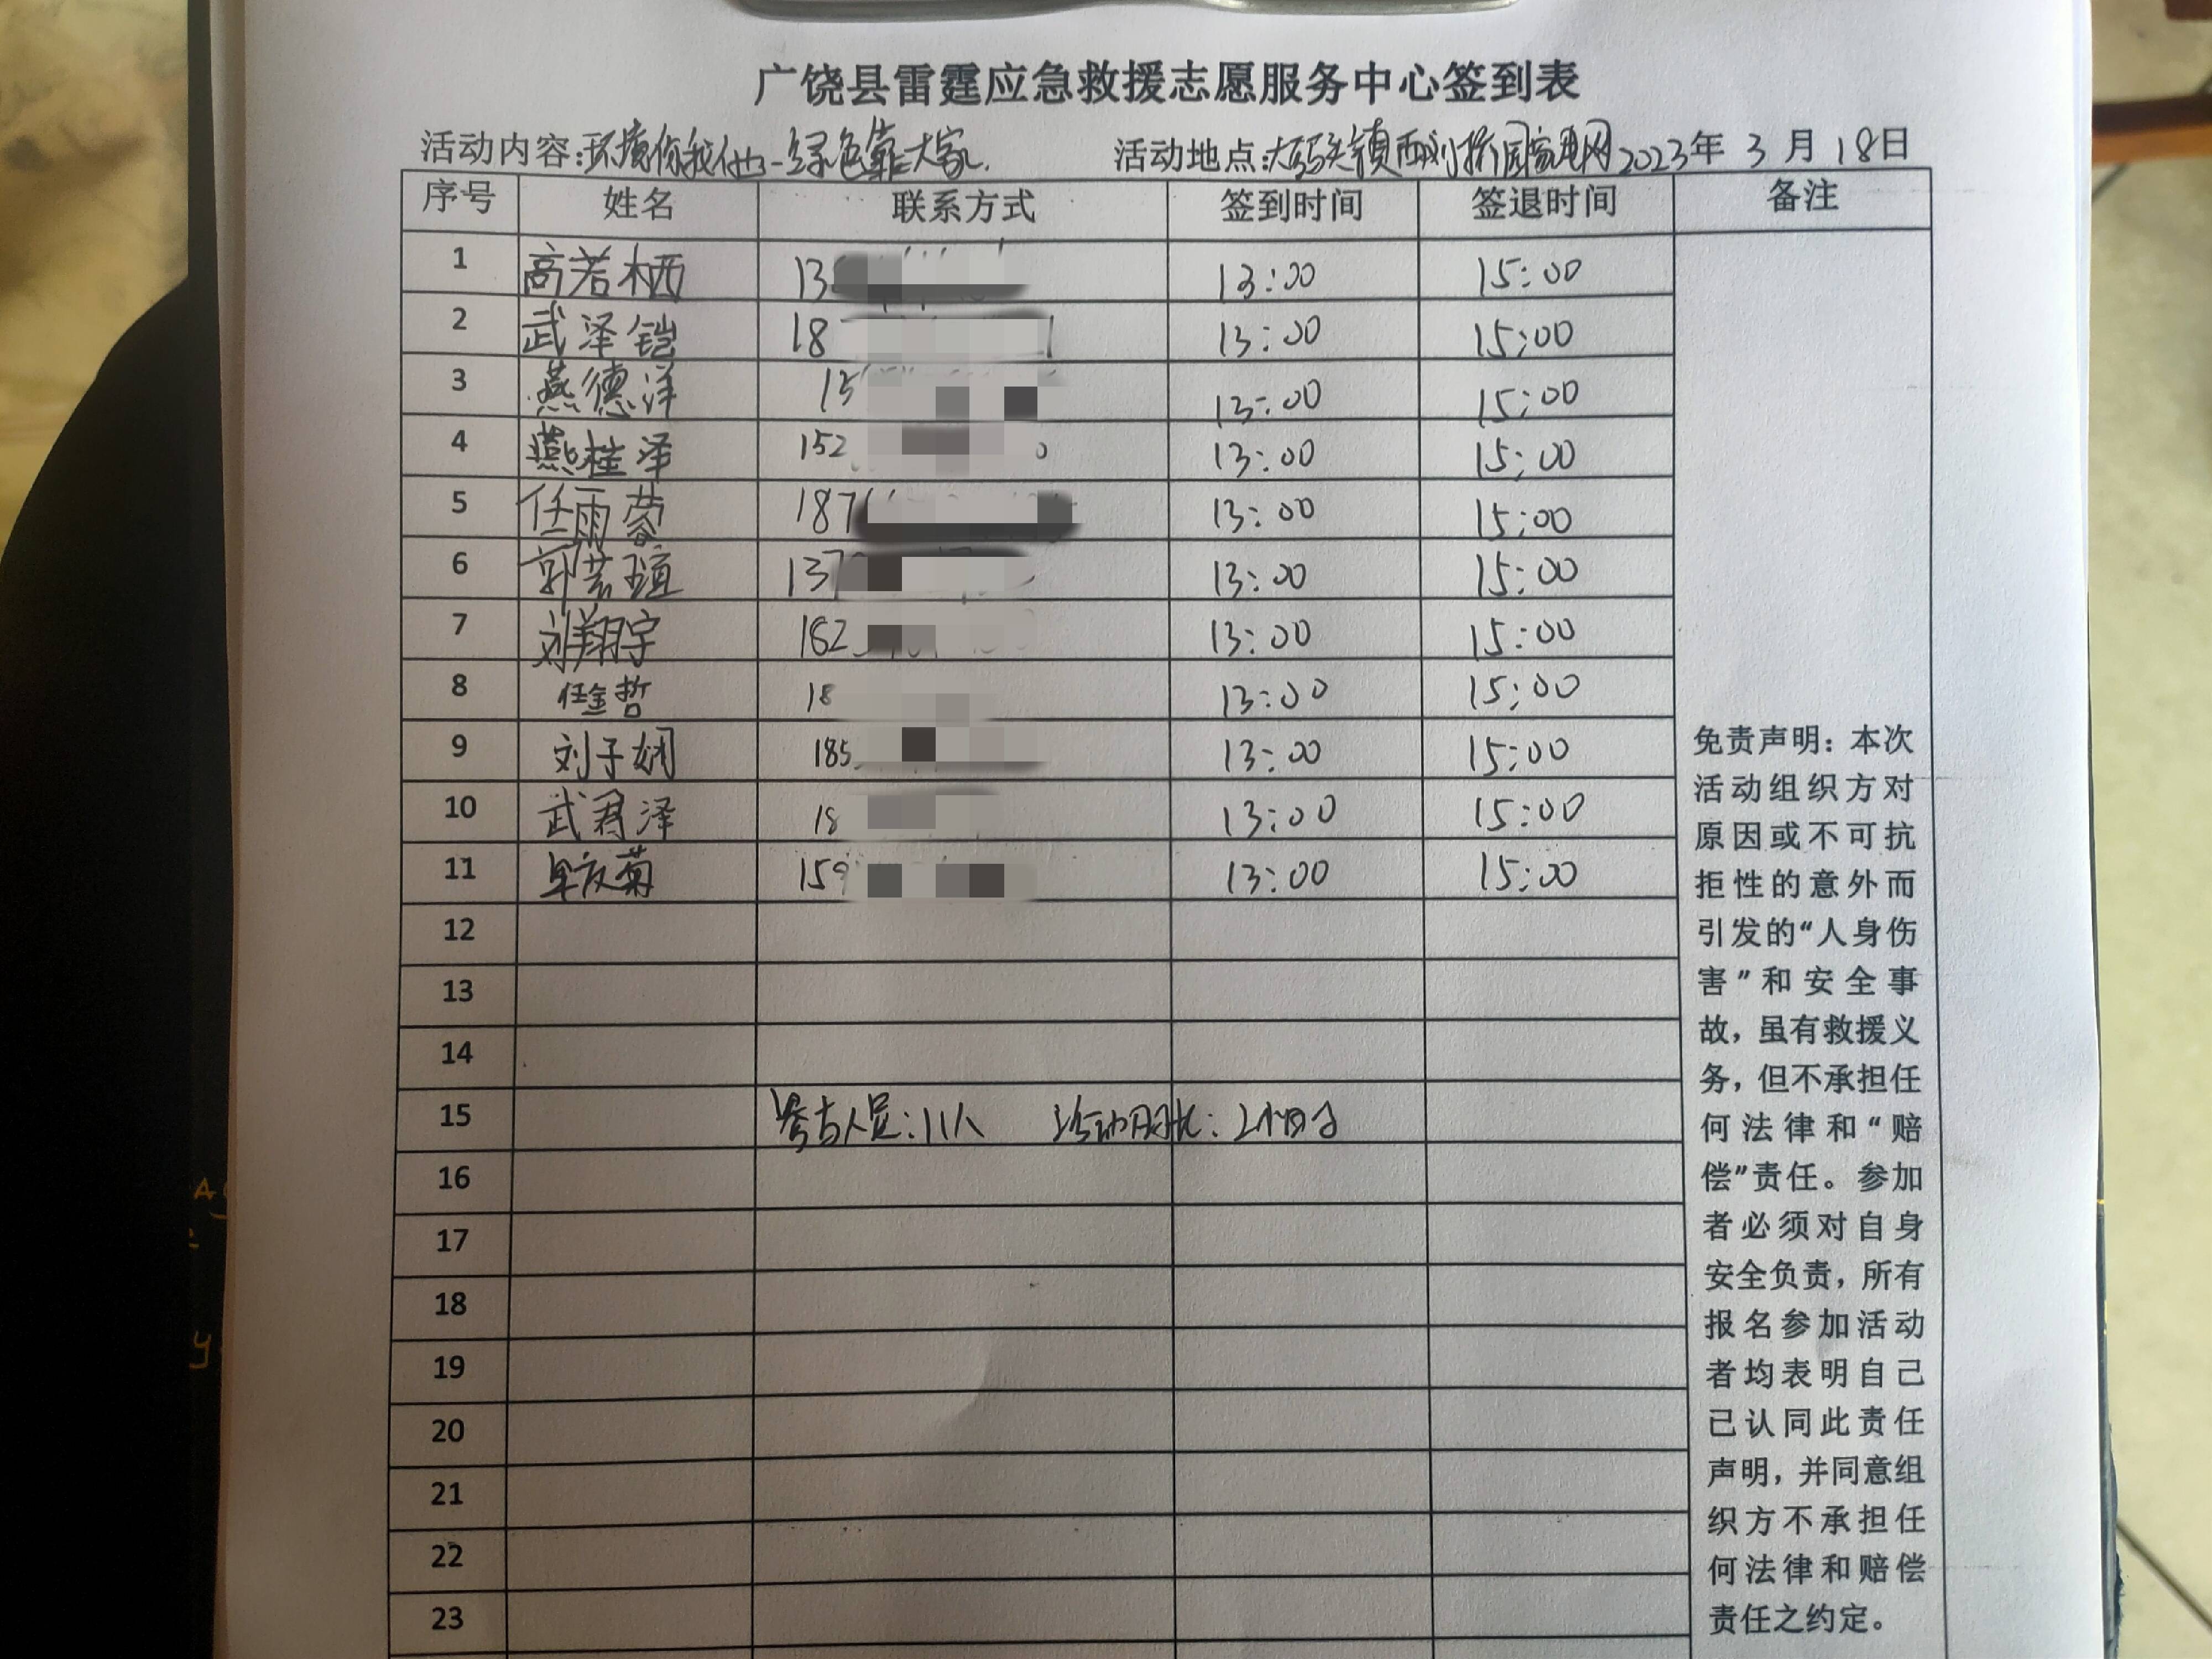 广饶县雷霆应急救援志愿服务中心签到表
活动内容:环境你我他-绿色靠大家. 活动地点:大码头镇西刘桥国家电网 2023年 3 月 18日
序号 姓名 联系方式 签到时间 签退时间 备注
1 高若栖 13 13:00 15:00
2 武泽铠 18 13:00 15:00
3 燕德洋 15 13:00 15:00
4 燕桂泽 152 13:00 15:00
5 任雨蓉 187 13:00 15:00
6 郭芸瑄 137 13:00 15:00
7 刘翔宇 182 13:00 15:00
8 任金哲 18 13:00 15:00
9 刘子娴 185 13:00 15:00
10 武君泽 18 13:00 15:00
11 159 13:00 15:00
12
13
14
15 参与人员:11人 活动时长:2小时
16
17
18
19
20
21
22
23
免责声明：本次
活动组织方对
原因或不可抗
拒性的意外而
引发的“人身伤
害”和安全事
故，虽有救援义
务，但不承担任
何法律和“赔
偿”责任。参加
者必须对自身
安全负责，所有
报名参加活动
者均表明自己
已认同此责任
声明，并同意组
织方不承担任
何法律和赔偿
责任之约定。